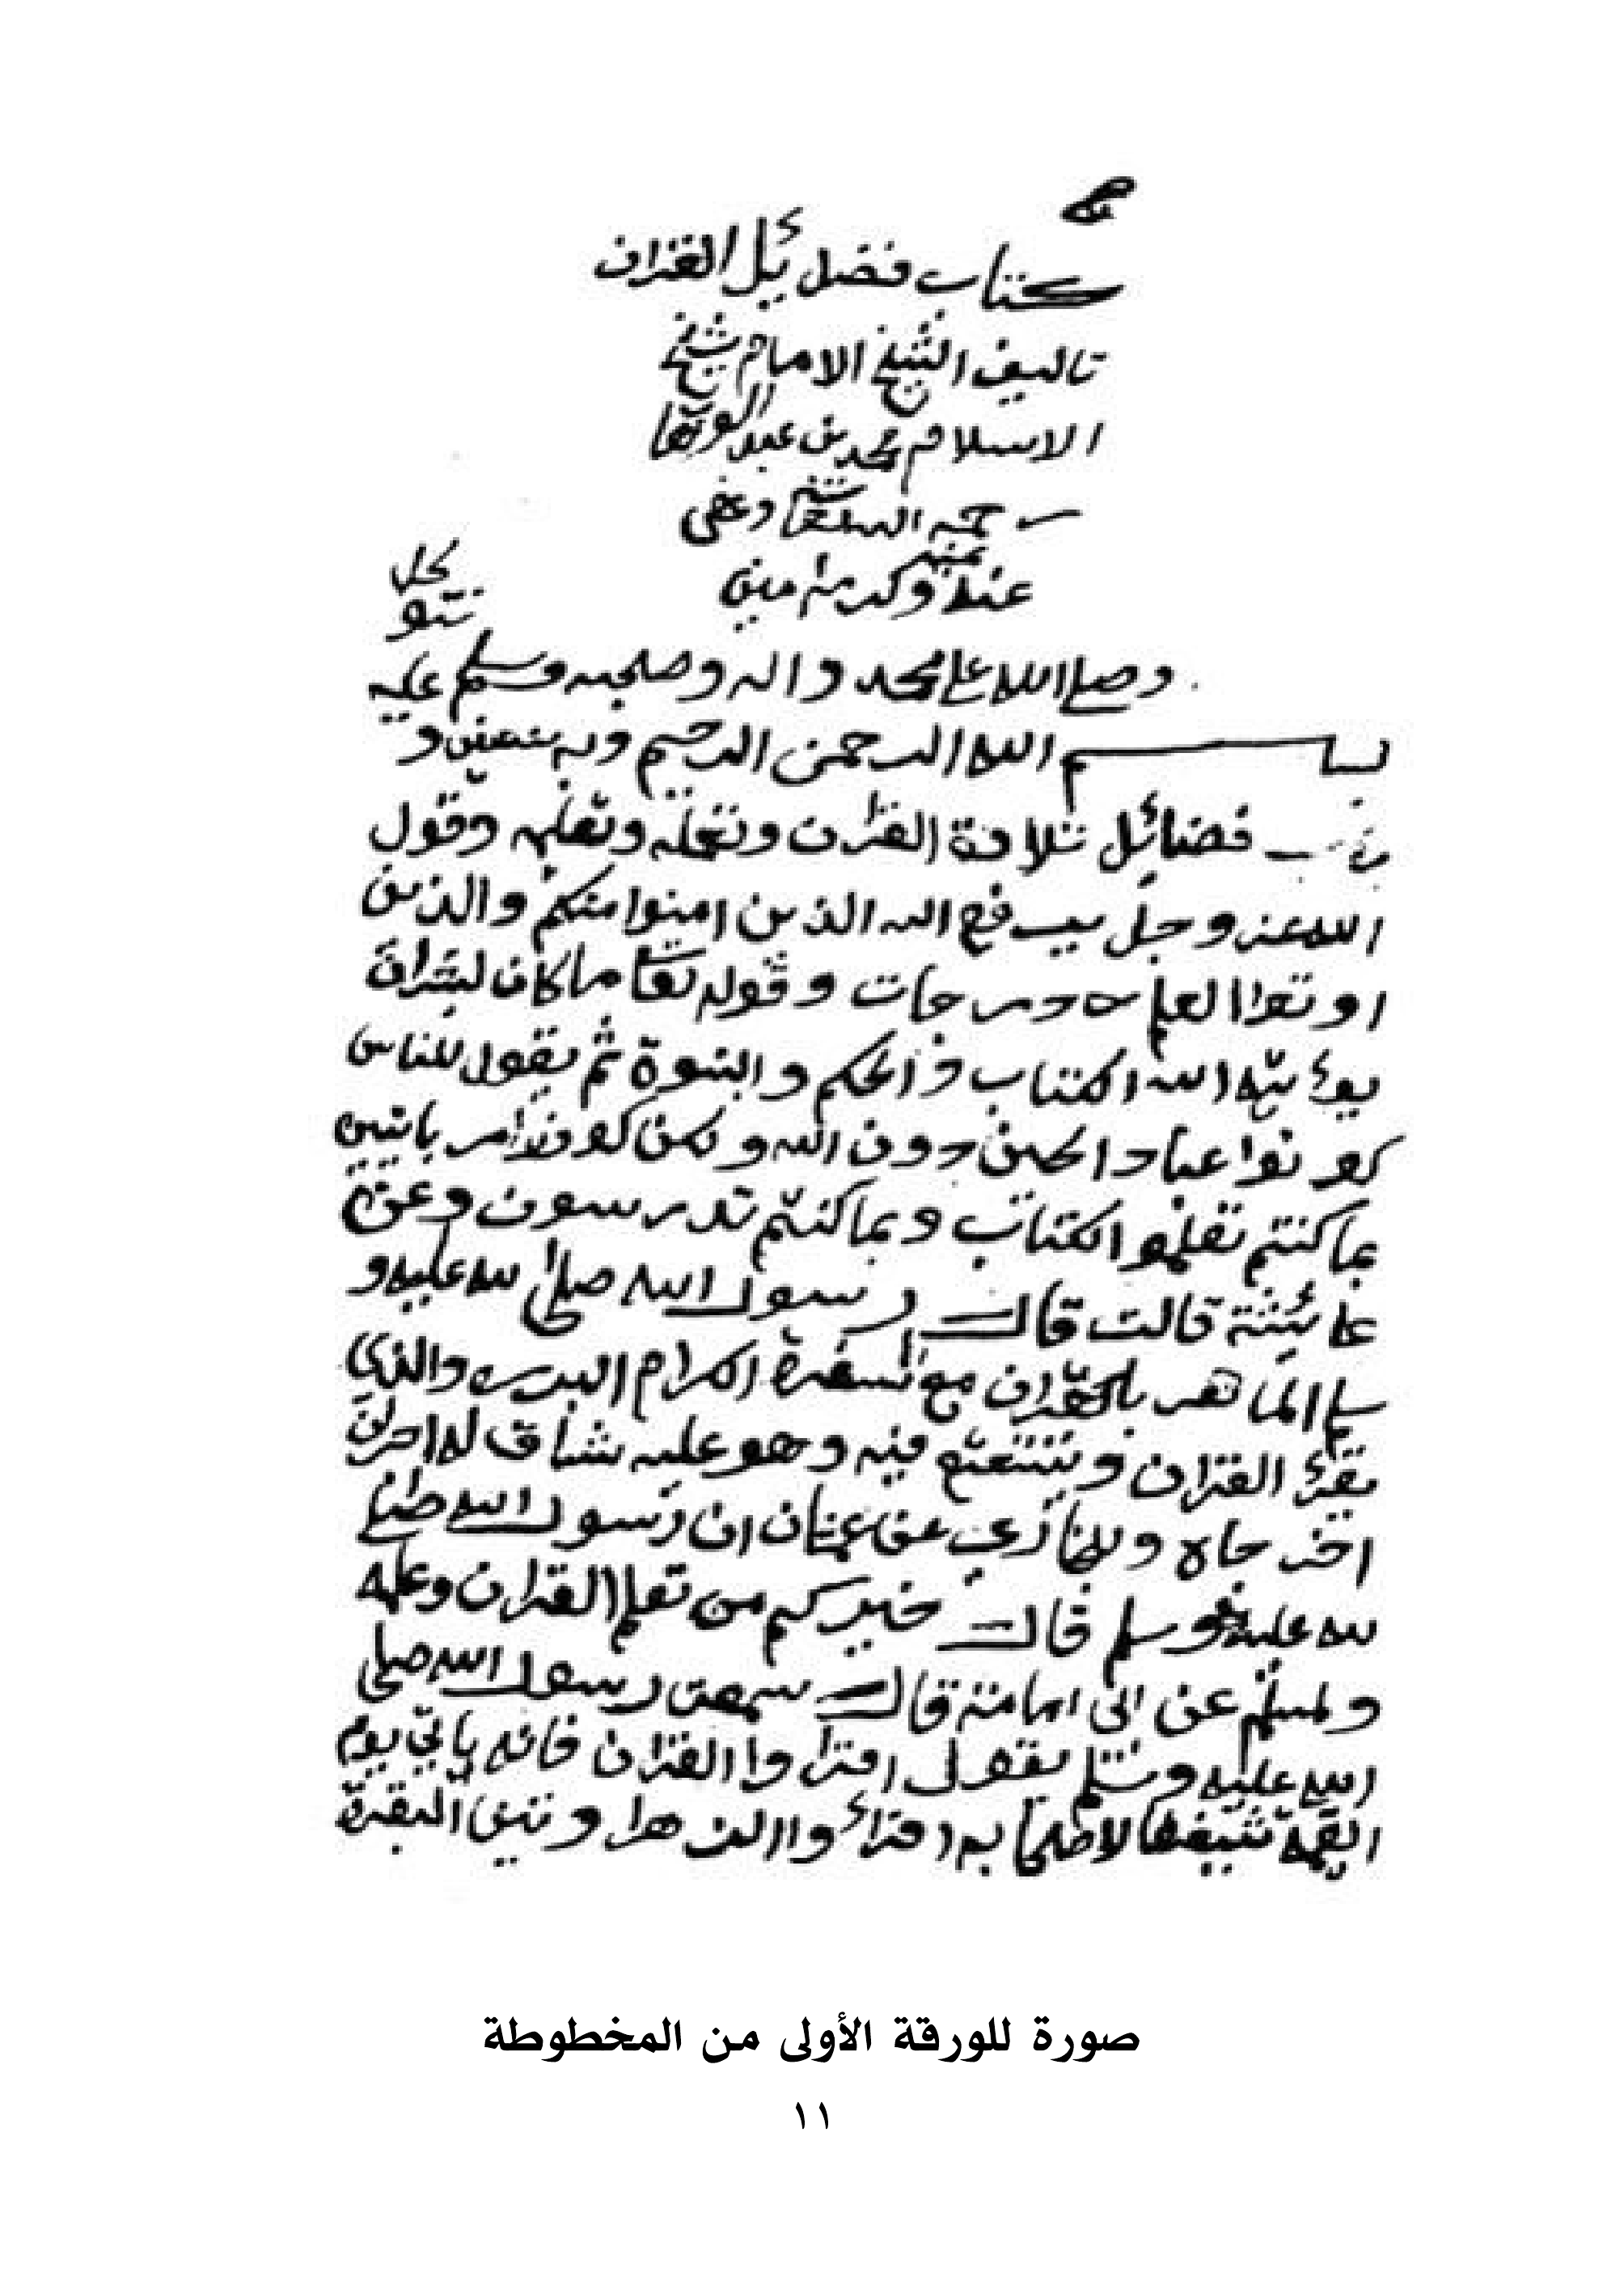 كتاب فضائل القران
تاليف الشيخ الامام شيخ
الاسلام محمد بن عبد الوهاب
رحمه الله تعالى وعفى
عنه وكرمه امين
وصلى الله على محمد واله وصحبه وسلم عليه
بسم الله الرحمن الرحيم وبه نستعين و
باب فضائل تلاوة القران وتعلمه وتعليمه وقول
الله عز وجل يرفع الله الذين امنوا منكم والذين
اوتوا العلم درجات وقوله تعا ما كان لبشر ان
يؤتيه الله الكتاب والحكم والنبوة ثم يقول للناس
كونوا عبادا لي من دون الله ولكن كونوا ربانيين
بما كنتم تعلمو الكتاب وبما كنتم تدرسون وعن
عائشة قالت قال رسول الله صلى لله عليه و
سلم الماهر بالقران مع السفرة الكرام البررة والذي
يقرئ القران ويتتعتع فيه وهو عليه شاق له اجران
اخرجاه وللبخاري عن عثمان ان رسول الله صلى
لله عليه وسلم قال خيركم من تعلم القران وعلمه
ولمسلم عن ابي امامة قال سمعت رسول الله صلى
الله عليه وسلم يقول اقراوا القران فانه ياتي يوم
القيمة شفيعا لاصحابه اقرائوا الزهراوين البقرة
صورة للورقة الأولى من المخطوطة
١١